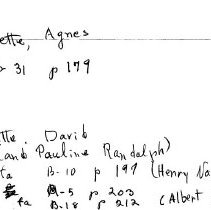 ette, Agnes
31 p 179
tte, David
and Pauline Randolph)
ta B-10 p 197 (Henry Na
-5 p 203
ta B-18 p 212 (Albert